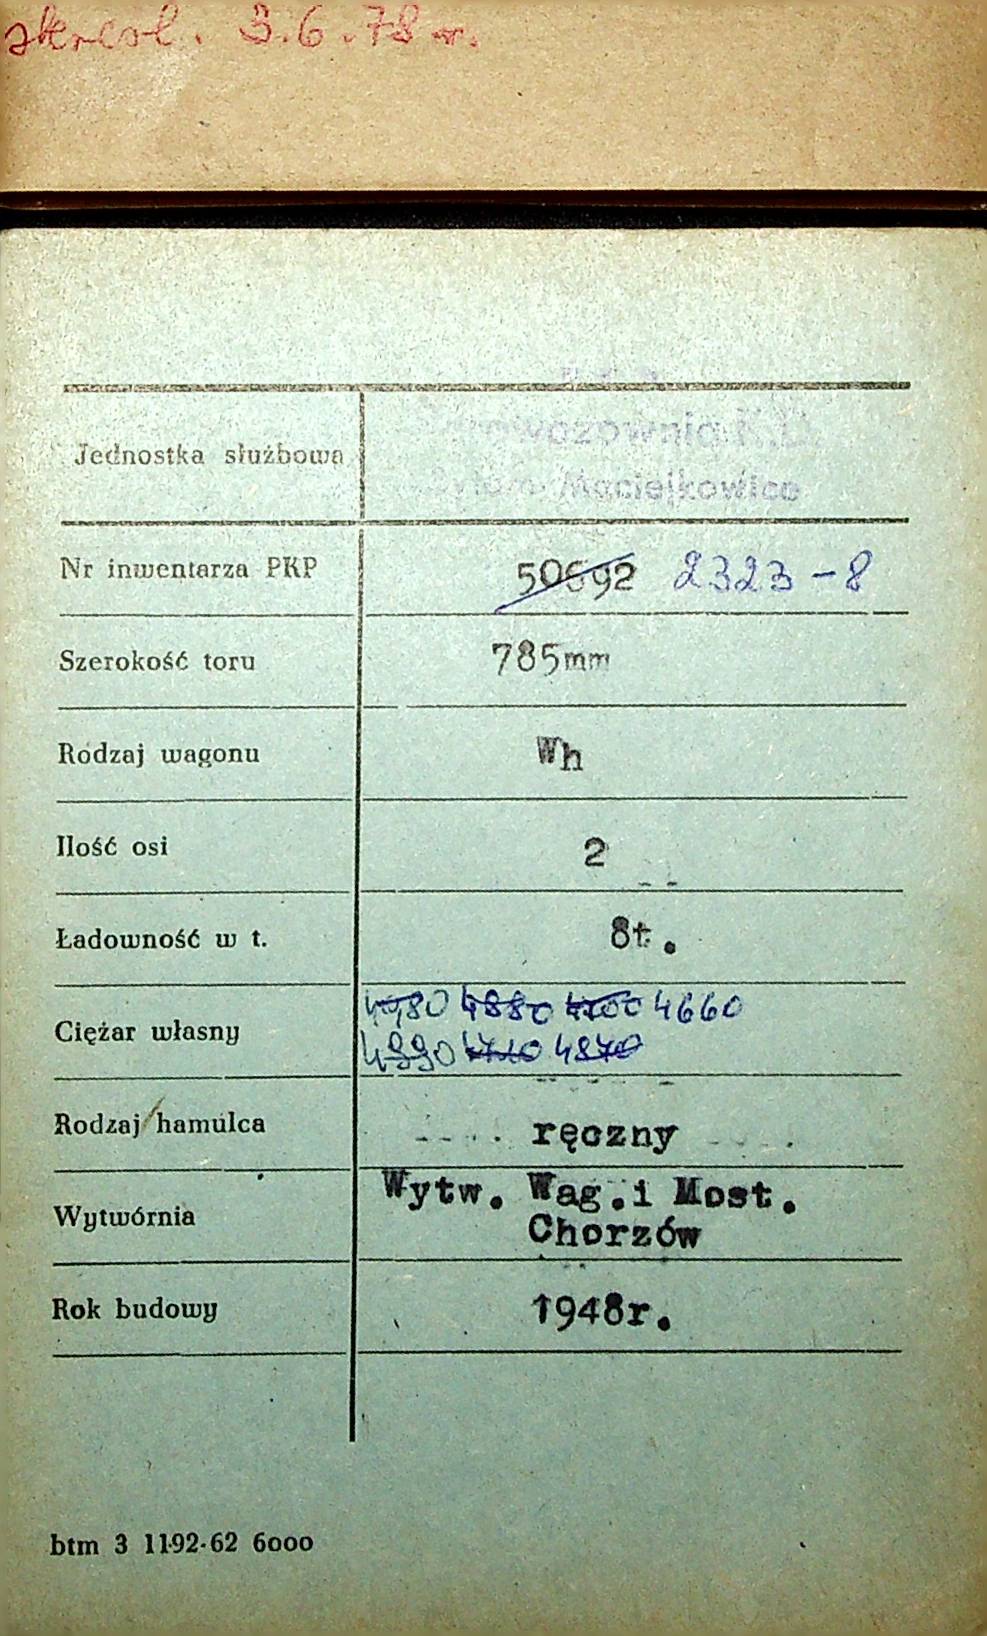 skreśl. 3.6.78 r.
Jednostka służbowa
Maciejkowice
Nr inwentarza PKP
50692 2323-8
Szerokość toru
785mm
Rodzaj wagonu
Wh
Ilość osi
2
Ładowność w t.
8t.
Ciężar własny
4880 4660
4870
Rodzaj hamulca
ręczny
Wytwórnia
Wytw. Wag. i Most.
Chorzów
Rok budowy
1948r.
btm 3 1192-62 6000